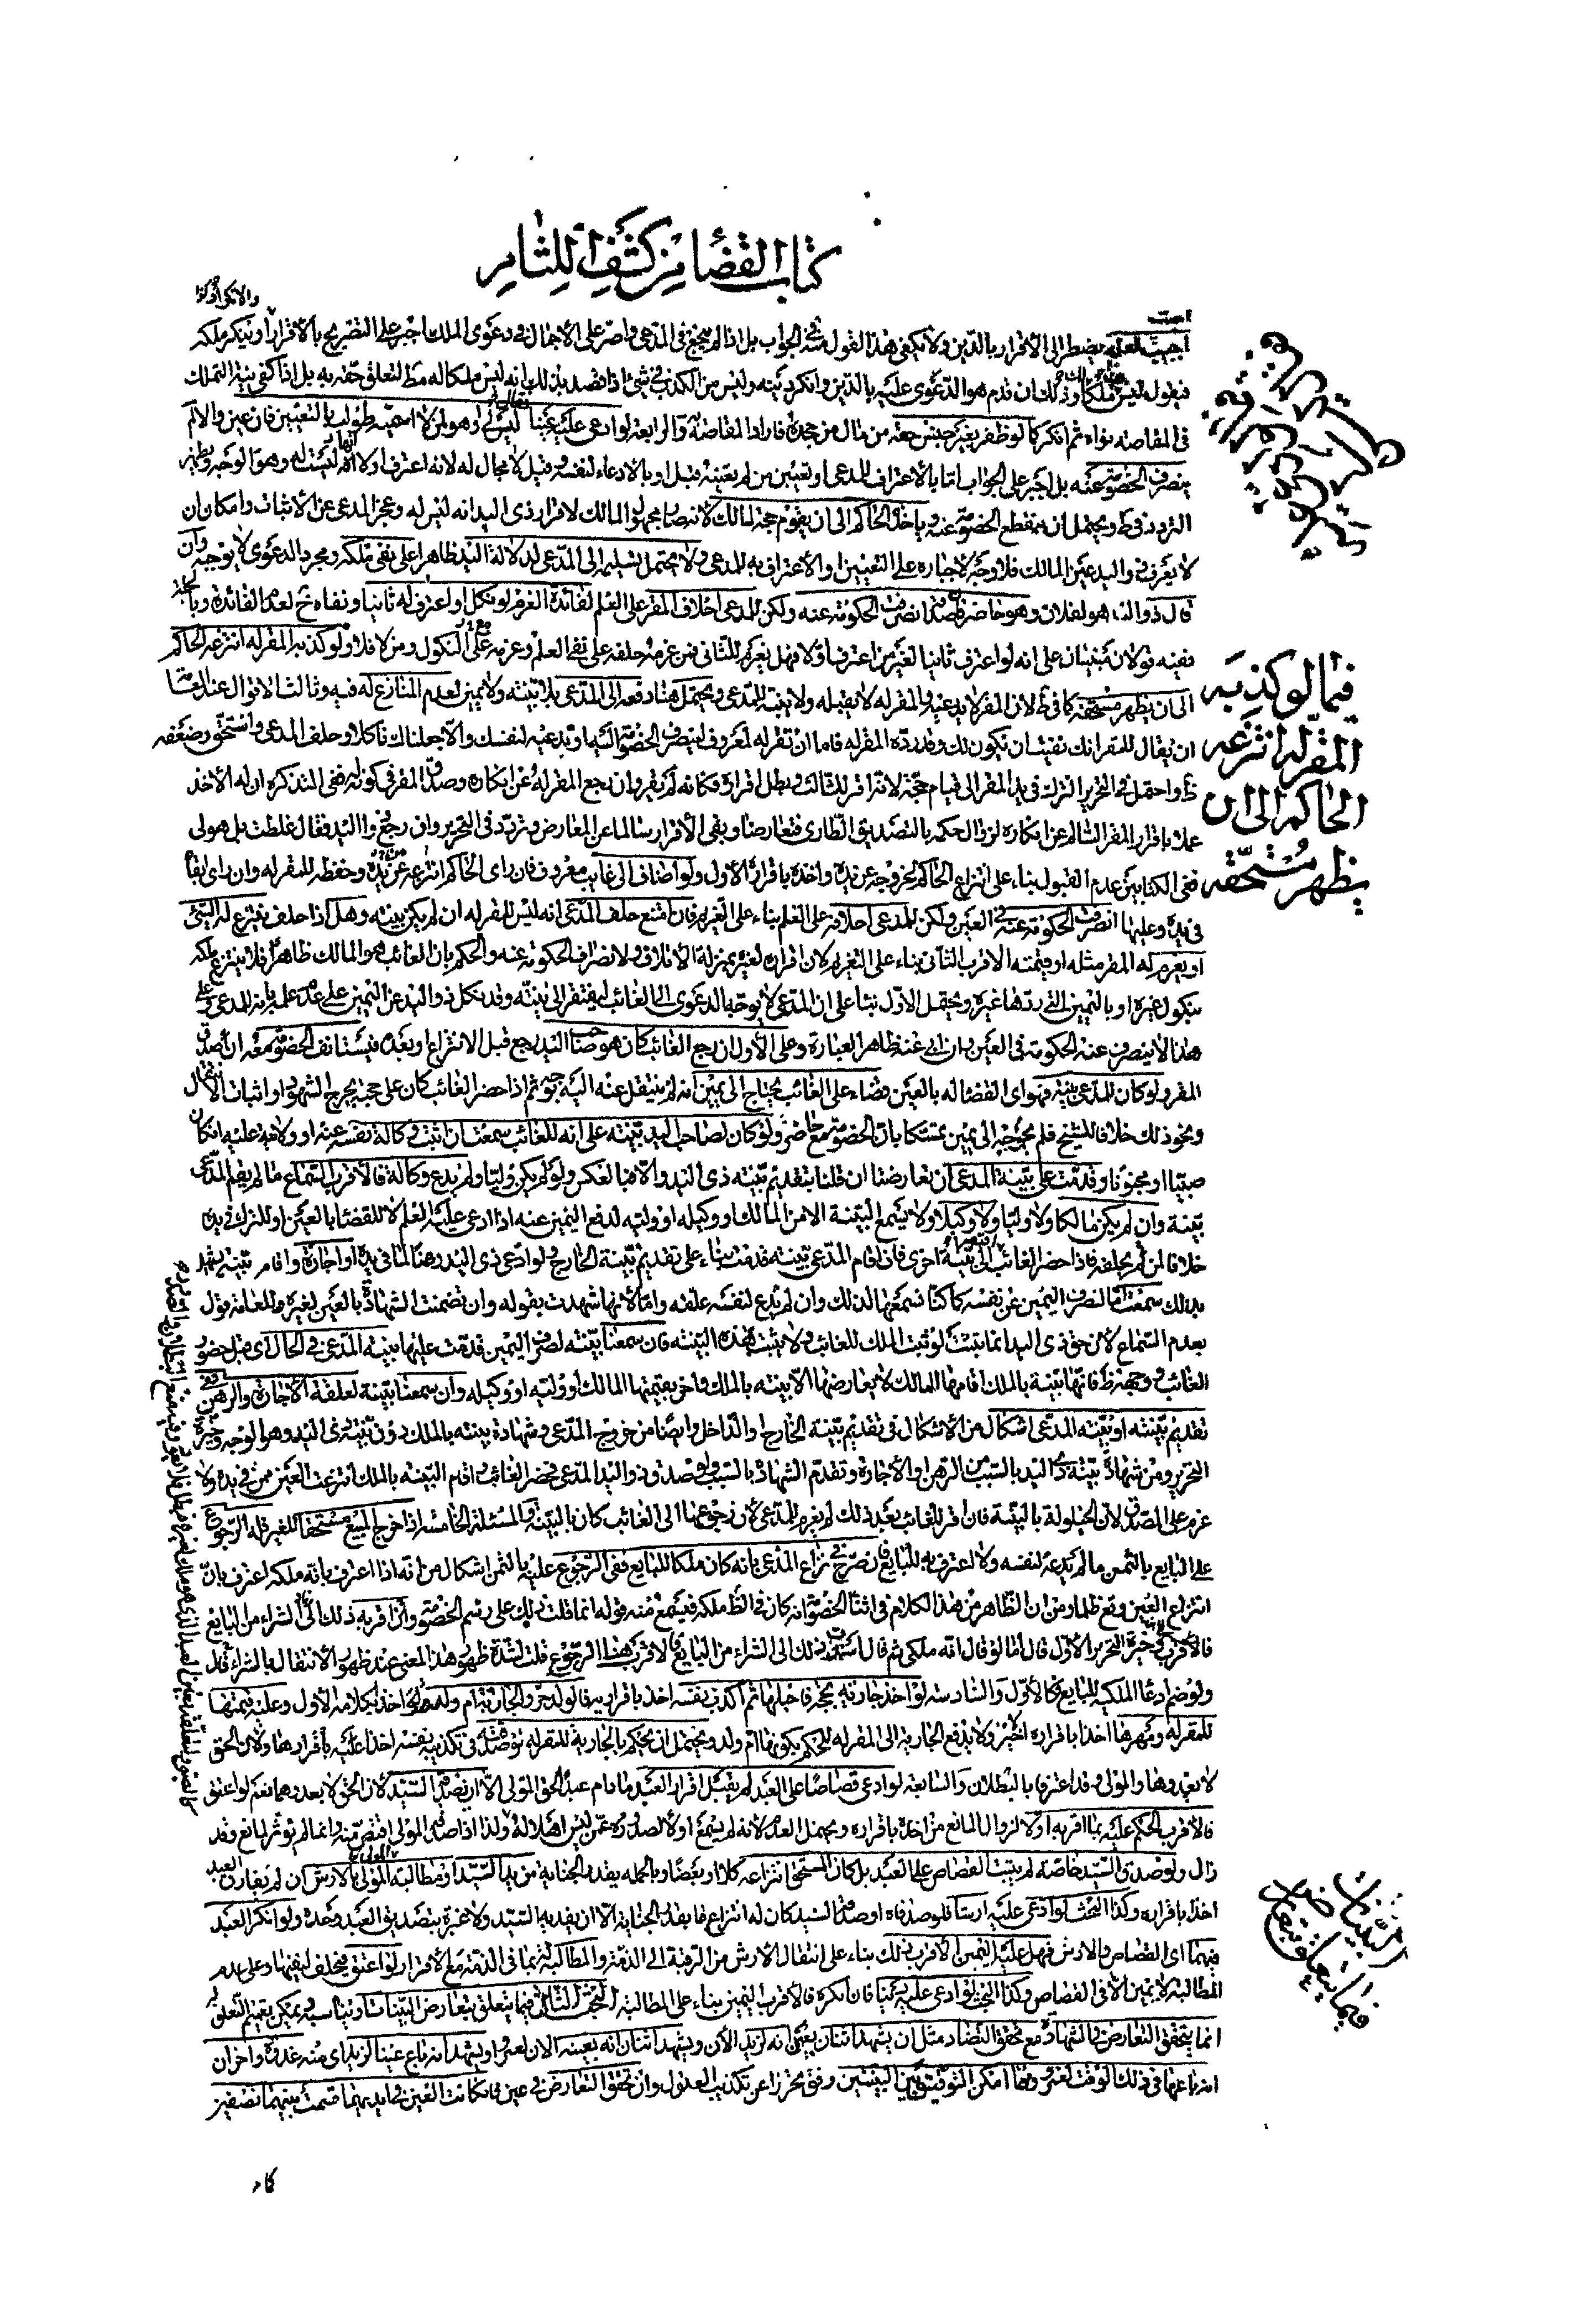 كتاب القضا من كشف اللثام
اجيب لعله يضطر الى الاقرار بالدين ولا يكفى هذا القول منه فى الجواب بل اذا لم ينجع فى المدعى واصر على الاجمال فى دعوى الملك اجبر على التصريح بالاقرار او ينكر ملكه
فيقول ليس ملكا وذلك ان قدم هو الدعوى عليه بالدين وانكر دينه وليس من الكذب فى شئ اذا قصد بذلك انه ليس ملكا له مط لتعلق حقه به بل اذا كفى نية التملك
فى المقاصة نواه ثم انكر كما لو ظفر بغير جنس حقه من مال من جحده فاراد المقاصة والرابعة لو ادعى عليه عينا فقال ليس لى او هو لمن لا اسميه طولب بالتعيين فان عين والا لم
ينصرف الخصومة عنه بل اجبر على الجواب اما بالاعتراف للمدعى او تعيين من لم يعينه قبل او بالادعاء لنفسه وقيل لا مجال له لانه اعترف اولا انها ليست له وهو الوجه ويظهر
التردد فى ط ويحتمل ان ينقطع الخصومة عنه وياخذ الحاكم الى ان يقوم حجة لمالك لانه صار مجهول المالك لاقرار ذى اليد انه ليس له وعجز المدعى عن الاثبات وامكان ان
لا يعرف ذو اليد عين المالك فلا وجه لاجباره على التعيين او الاعتراف به للمدعى ولا يحتمل تسليمه الى المدعى لدلالة اليد ظاهرا على نفى ملكه ومجرد الدعوى لا يوجبه وان
قال ذو اليد هو لفلان وهو حاضر فان صدقه انصرفت الحكومة عنه ولكن للمدعى احلاف المقر على العلم لفائدة الغرم لو نكل او اعترف له ثانيا ونفاه خ لعدم الفائدة
فيه قولان مبنيان على انه لو اعترف ثانيا لغير من اعترف اولا فهل يغرم للثانى فمن غرمه حلفه على نفى العلم وغرمه مع النكول ومن لا فلا ولو كذبه المقر له انتزعه الحاكم
الى ان يظهر مستحقه كما فى ط لان المقر لا يدعيه والمقر له لا يقبله ولا بينة للمدعى ويحتمل هنا دفعه الى المدعى بلا بينة ولا يمين لعدم المنازع له فيه وثالث الاقوال عند العامة
ان يقال للمقر انك نفيت ان يكون لك وقد رده المقر له فاما ان تقر له لمعروف لينصرف الخصومة اليه او تدعيه لنفسك والا جعلناك ناكلا وحلف المدعى واستحق وضعفه
ظ واحتمل فى التحرير الترك فى يد المقر الى قيام حجة لانه اقر للثالث وبطل اقراره فكانه لم يقر وان رجع المقر له عن انكاره وصدق المقر فى كونه له ففى التذكرة ان له الاخذ
عملا باقرار المقر السالم عن انكاره لزوال حكمه بالتصديق الطارى فتعارضا وبقى الاقرار سالما عن المعارض وتردد فى التحرير وان رجع ذو اليد فقال غلطت بل هو لى
ففى الكتابين عدم القبول بناء على انتزاع الحاكم لخروجه عن يده واخذه باقراره الاول ولو اضاف الى غايب معروف فان راى الحاكم انتزعه عن يده وحفظه للمقر له وان راى بقاه
فى يده وعليهما انصرفت الحكومة عنه فى العين ولكن للمدعى احلافه على العلم بناء على التغريم فان امتنع حلف المدعى انه ليس للمقر له ان لم يكن بينة وهل اذا حلف ينتزع له الشئ
او يغرم له المقر مثله او قيمته الاقرب الثانى بناء على التغريم لان اقراره لغيره بمنزلة الاتلاف ولانصراف الحكومة عنه والحكم بان الغائب هو المالك ظاهرا فلا ينتزع ملكه
بنكول غيره او باليمين التى ردها غيره ويحتمل الاول بناء على ان المدعى لا يوجه بالدعوى الى الغائب ليفتقر الى بينة وقد نكل ذو اليد عن اليمين على عدم علمه بانه للمدعى
هذا لا ينصرف عنه الحكومة فى العين وان ابى عنه ظاهر العبارة وعلى الاول ان رجع الغائب كان هو صاحب اليد رجع قبل الانتزاع او بعده فيستانف الخصومة معه ان صدق
المقر ولو كان للمدعى بينة فهو اى القضا له بالعين قضاء على الغائب يحتاج الى يمين انه لم ينتقل عنه اليه بوجه ثم اذا حضر الغائب كان على حجته بجرح الشهود او اثبات الانتقال
ونحو ذلك خلافا للشيخ فلم يحوجه الى يمين تمسكا بان الخصومة مع حاضر ولو كان لصاحب اليد بينة على انه للغائب سمعت ان اثبت وكالة نفسه عنه او ولايته عليه ان كان
صبيا او مجنونا وقدمت على بينة المدعى ان تعارضتا ان قلنا بتقديم بينة ذى اليد والا فبالعكس ولو لم يكن وليا ولم يدع وكالة فالاقرب السماع ما لم يقم المدعى
بينة وان لم يكن مالكا ولا وليا ولا وكيلا ولا يسمع البينة الا من المالك او وكيله او وليه لدفع اليمين عنه اذا ادعى عليه العلم لا للقضا بالعين او للترك فى يده
خلافا لمن لم يحلفه فاذا حضر الغائب افتقر الى بينة اخرى فان اقام المدعى بينة قدمت بناء على تقديم بينة الخارج ولو ادعى ذى اليد رهنا لما فى يده او اجارة واقام بينة يشهد
بذلك سمعت اما لصرف اليمين عن نفسه كما كنا نسمعها لذلك وان لم يدع لنفسه علقة واما لانها شهدت بقوله وان تضمنت الشهادة بالعين لغيره وللعامة قول
بعدم السماع لان حق ذى اليد انما يثبت لو ثبت الملك للغائب ولا يثبت بهذه البينة فان سمعنا بينته لصرف اليمين قدمت عليها بينة المدعى فى الحال اى قبل حضور
الغائب وجهته فانها بينة بالملك اقامها المالك لا يعارضها الا بينة بالملك واخر يقيمها المالك او وليه او وكيله وان سمعنا بينة لعلقة الاجارة والرهن ففى
تقديم بينته او بينة المدعى اشكال من الاشكال فى تقديم بينة الخارج او الداخل وايضا من خروج المدعى وشهادة بينته بالملك دون بينة ذى اليد وهو الوجه وخيرة
التحرير ومن شهادة بينة ذى اليد بالسبب من الرهن او الاجارة وتقدم الشهادة بالسبب ولو صدق ذو اليد المدعى فحضر الغائب واقام البينة بالملك انتزعت العين ممن فى يده ولا
غرم على المصدق لان الحيلولة بالبينة فان اقر للغائب بعد ذلك لم يغرم للمدعى لان رجوعها الى الغائب كان بالبينة والمسئلة الخامسة اذا خرج المبيع مستحقا للغير فله الرجوع
على البايع بالثمن ما لم يدعه لنفسه ولا اعترف به للبايع فان صرح فى نزاع المدعى بانه كان ملكا للبايع ففى الرجوع عليه بالثمن اشكال من انه اذا اعترف بانه ملكه اعترف بان
انتزاع العين وقع ظلما ومن ان الظاهر من هذا الكلام فى اثناء الخصومة انه كان فى الظ ملكه فيسمع منه قوله انما قلت ذلك على رسم الخصومة
فالاقرب وخيرة التحرير الاول قال اما لو قال انه ملكى ثم قال استندت بذلك الى الشراء من البايع فالاقرب هنا الرجوع قلت لشدة ظهور هذا المعنى عند ظهور الانتقال بالشراء
ولوضم ادعاء الملكية للبايع فكالاول والسادسة لو اخذ جارية بحجة فاحبلها ثم اكذب نفسه اخذ باقراره فالولد حر والجارية ام ولد اخذا بكلامه الاول وعليه قيمتها
للمقر له ومهرها اخذا باقراره الاخير ولا يدفع الجارية الى المقر له للحكم بكونها ام ولد ويحتمل ان يحكم بالجارية للمقر له لو صدقته فى تكذيب نفسه اخذا عليه باقرارها ولان الحق
لا يعدوها والمولى وقد اعترفا بالبطلان والسابعة لو ادعى قصاصا على العبد لم يقبل اقرار العبد ما دام عبدا لحق المولى الا ان يصدقه السيد لان الحق لا يعدوهما نعم لو اعتق
فالاقرب الحكم عليه بما اقر به اولا لزوال المانع من اخذه باقراره ويحتمل العدم لانه لم يسمع اولا لصدوره عمن ليس اهلا له ولذا اذا صدقه المولى اقتص منه وانما لم يؤثر لمانع وقد
زال ولو صدق السيد خاصة لم يثبت القصاص على العبد بل كان المستحق انتزاعه كلا او بعضا وبالجملة بقدر الجناية من يد السيد او مطالبته المولى بالارش ان لم يفارق العبد
اخذا باقراره وكذا البحث لو ادعى عليه ارشا فلو صدقاه او صدق السيد كان له انتزاع ما بقدر الجناية الا ان يفديه السيد ولا عبرة بتصديق العبد وحده ولو انكر العبد
فيهما اى القصاص والارش فهل عليه اليمين الاقرب ذلك بناء على انتقال الارش من الرقبة الى الذمة والمطالبة بما فى الذمة مع الاقرار لو اعتق فيحلف لينفيها وعلى عدم
المطالبة لا يمين الا فى القصاص وكذا البحث لو ادعى عليه دينا فان انكره فالاقرب اليمين بناء على المطالبة البحث الثانى فيما يتعلق بتعارض البينات وتناسبه ويمكن تعميم التعلق
انما يتحقق التعارض فى الشهادة مع تحقق التضاد مثل ان يشهد اثنان بعين انه لزيد الان ويشهد اثنان انه بعينه الان لعمرو او يشهد انه باع عينا لزيد اى منه غدوة واخران
انه باعها فى ذلك الوقت لعمرو ومهما امكن التوفيق بين البينتين وفق تحرزا عن تكذيب العدول وان تحقق التعارض فى عين فان كانت العين فى يديهما قسمت بينهما نصفين
فيما لو كذبه
المقر له انتزعه
الحاكم الى ان
يظهر مستحقه
فيما يتعلق بتعارض
البينات